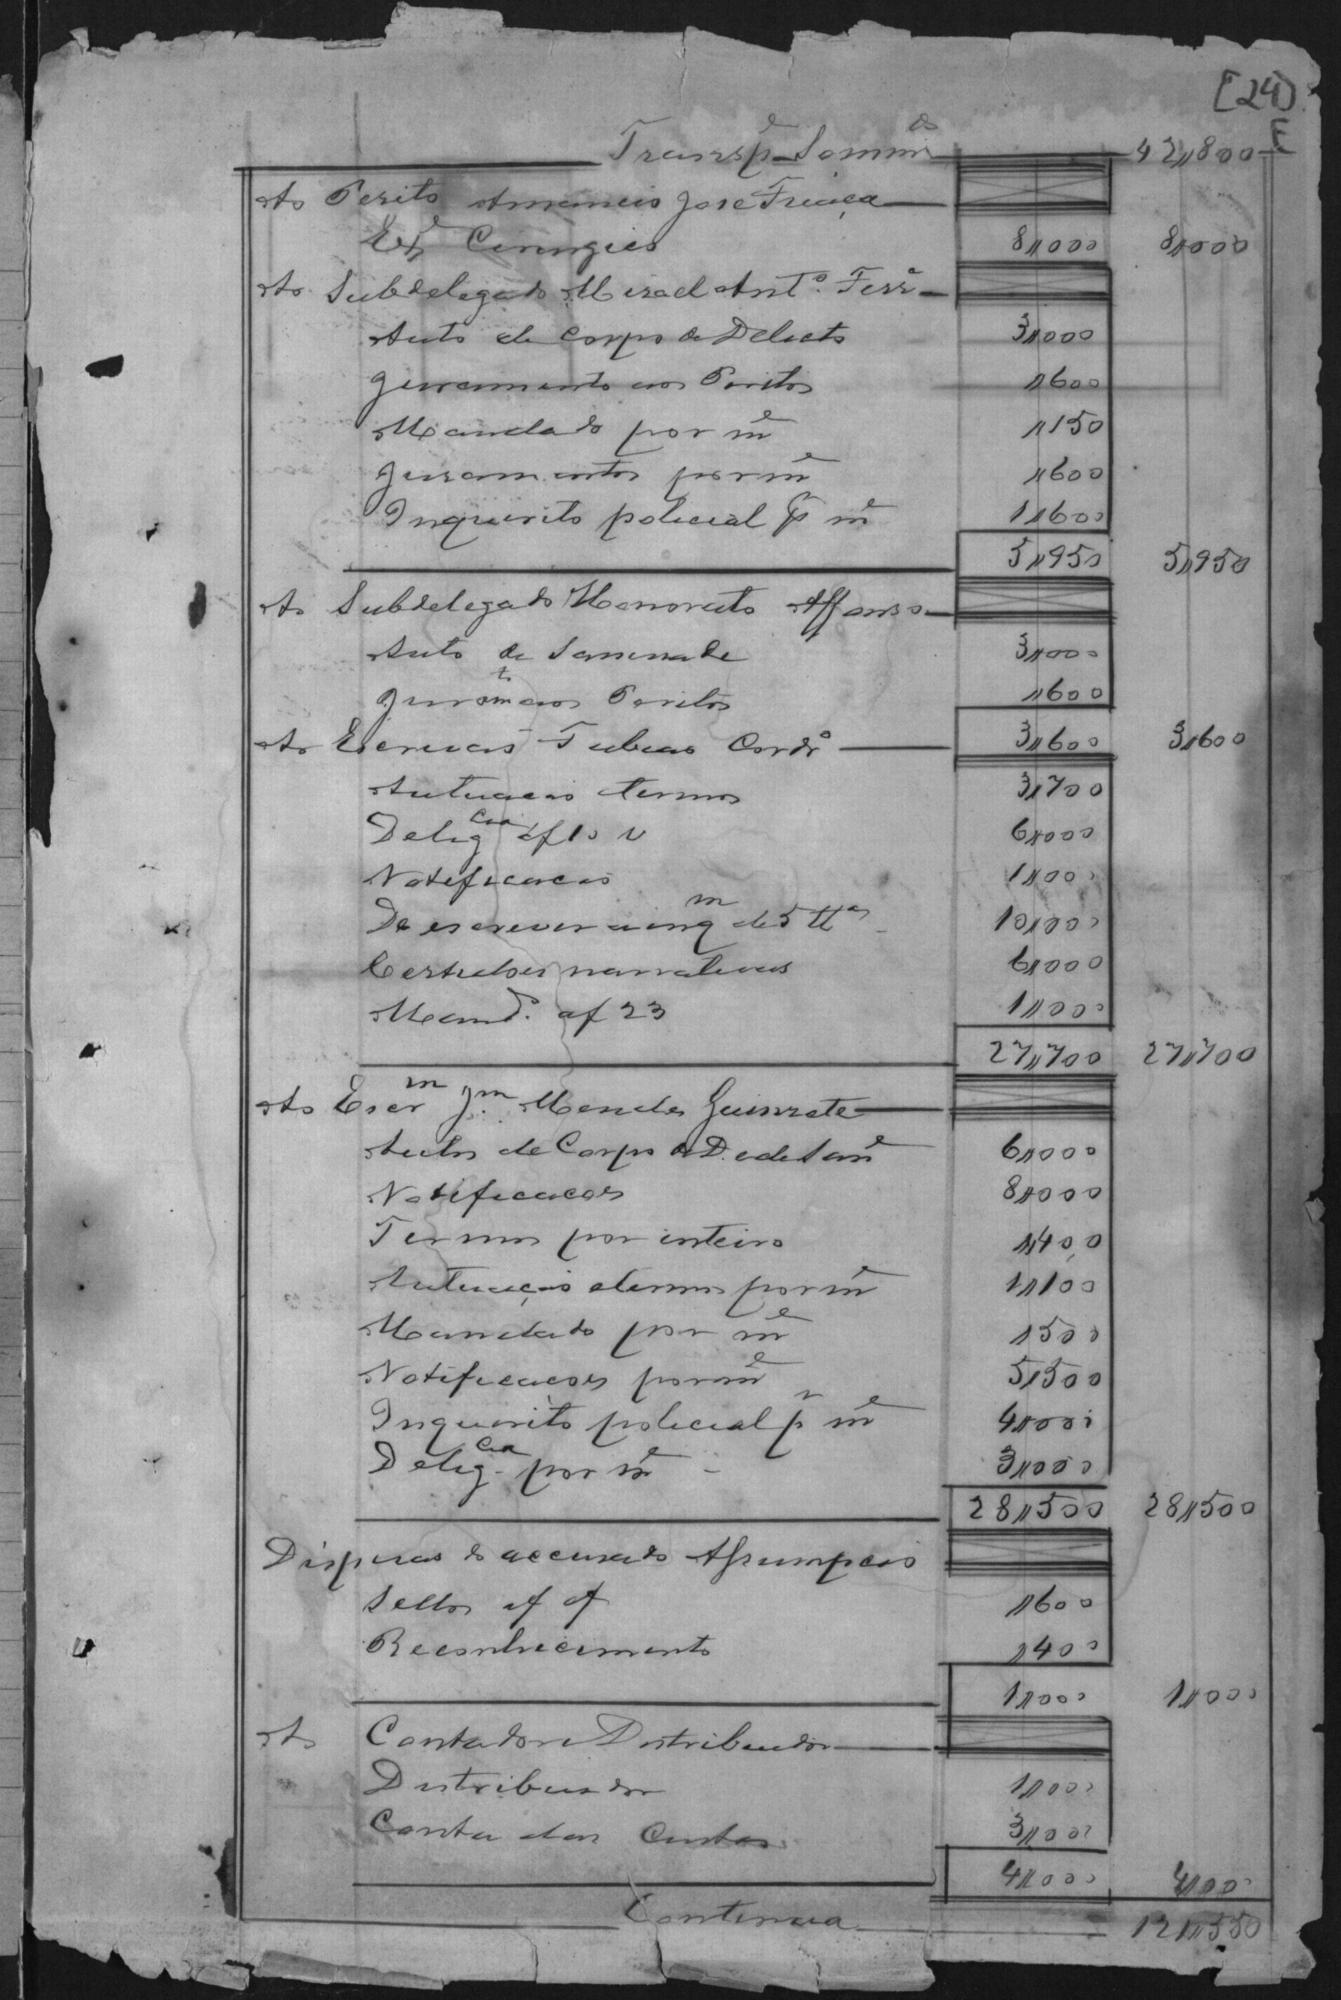 [24]
Transp.e Somm.do 42,,800
Ao Perito Amancio José Friaça
Ex.e Cirurgico 8,,000 8,,000
Ao Subdelegado Mizael Ant.o Ferr.a
Auto de Corpo de Delicto 3,,000
Juramento aos Peritos ,,600
Mandado por m.e ,,150
Juramentos por m.e ,,600
Inquerito policial p.r m.e 1,,600
5,,950 5,,950
Ao Subdelegado Honorato Affonso
Auto de Sanidade 3,,000
Juram.to aos Peritos ,,600
Ao Escrivão Tubias Cordr.o 3,,600 3,,600
Autuacão termos 3,,700
Delig.cia af 10 v 6,,000
Notificacão 1,,000
De escrever a inq.m de 5 tt.as 10,,000
Certidões narrativas 6,,000
Mand.o af 23 1,,000
27,,700 27,,700
Ao Escr.m J.m Mendes
Autos de Corpo de D. e de San.e 6,,000
Notificacões 8,,000
Termos por inteiro ,,400
Autuação etermos por m.e 1,,100
Mandado por m.e ,500
Notificacões por m.e 5,,500
Inquerito policial p.r m.e 4,,000
Delig.cia por m.e 3,,000
28,,500 28,,500
Dispesas do accusado Assumpcão
Sellos af af ,,600
Reconhecimento ,400
1,,000 1,,000
Ao Contador e Distribuidor
Distribuidor 1,,000
Conta das Custas 3,,000
4,,000 4,,000
Continua 121,,550